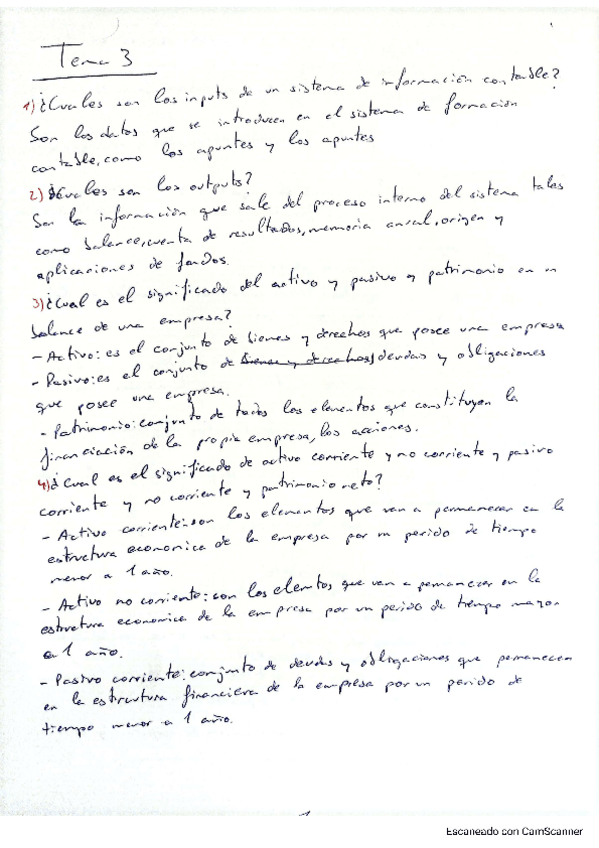 Tema 3
1) ¿Cuales son los inputs de un sistema de información contable?
Son los datos que se introducen en el sistema de formación
contable, como los apuntes y los apuntes
2) ¿Cuales son los outputs?
Son la información que sale del proceso interno del sistema tales
como balance, cuenta de resultados, memoria anual, origen y
aplicaciones de fondos.
3) ¿Cual es el significado del activo y pasivo y patrimonio en un
balance de una empresa?
- Activo: es el conjunto de bienes y derechos que posee una empresa
- Pasivo: es el conjunto de bienes y derechos deudas y obligaciones
que posee una empresa.
- Patrimonio: conjunto de todos los elementos que constituyen la
financiación de la propia empresa, los acciones.
4) ¿Cual es el significado de activo corriente y no corriente y pasivo
corriente y no corriente y patrimonio neto?
- Activo corriente: son los elementos que van a permanecer en la
estructura economica de la empresa por un perido de tiempo
menor a 1 año.
- Activo no corriente: son los elemtos que van a pemanecer en la
estructura economica de la empresa por un perido de tiempo mayor
a 1 año.
- Pasivo corriente: conjunto de deudas y obligaciones que permanecen
en la estructura financiera de la empresa por un perido de
tiempo menor a 1 año.
Escaneado con CamScanner